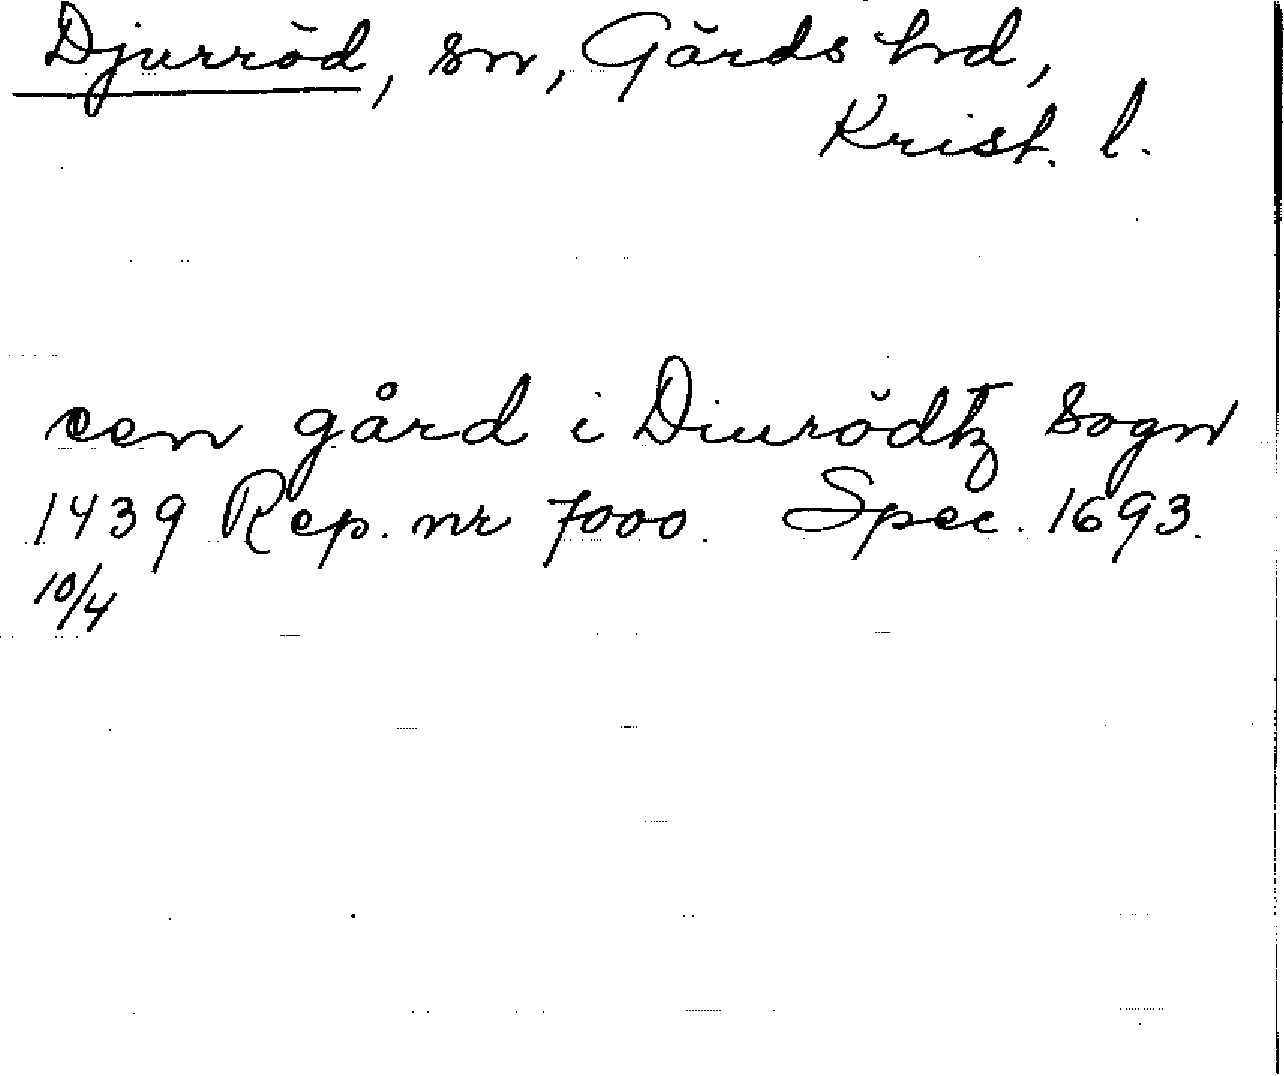 Djurröd, sn, Gärds hrd,
Krist. l.
een gård i Diurödtz Sogn
1439 Rep. nr 7000. Spec. 1693.
10/4